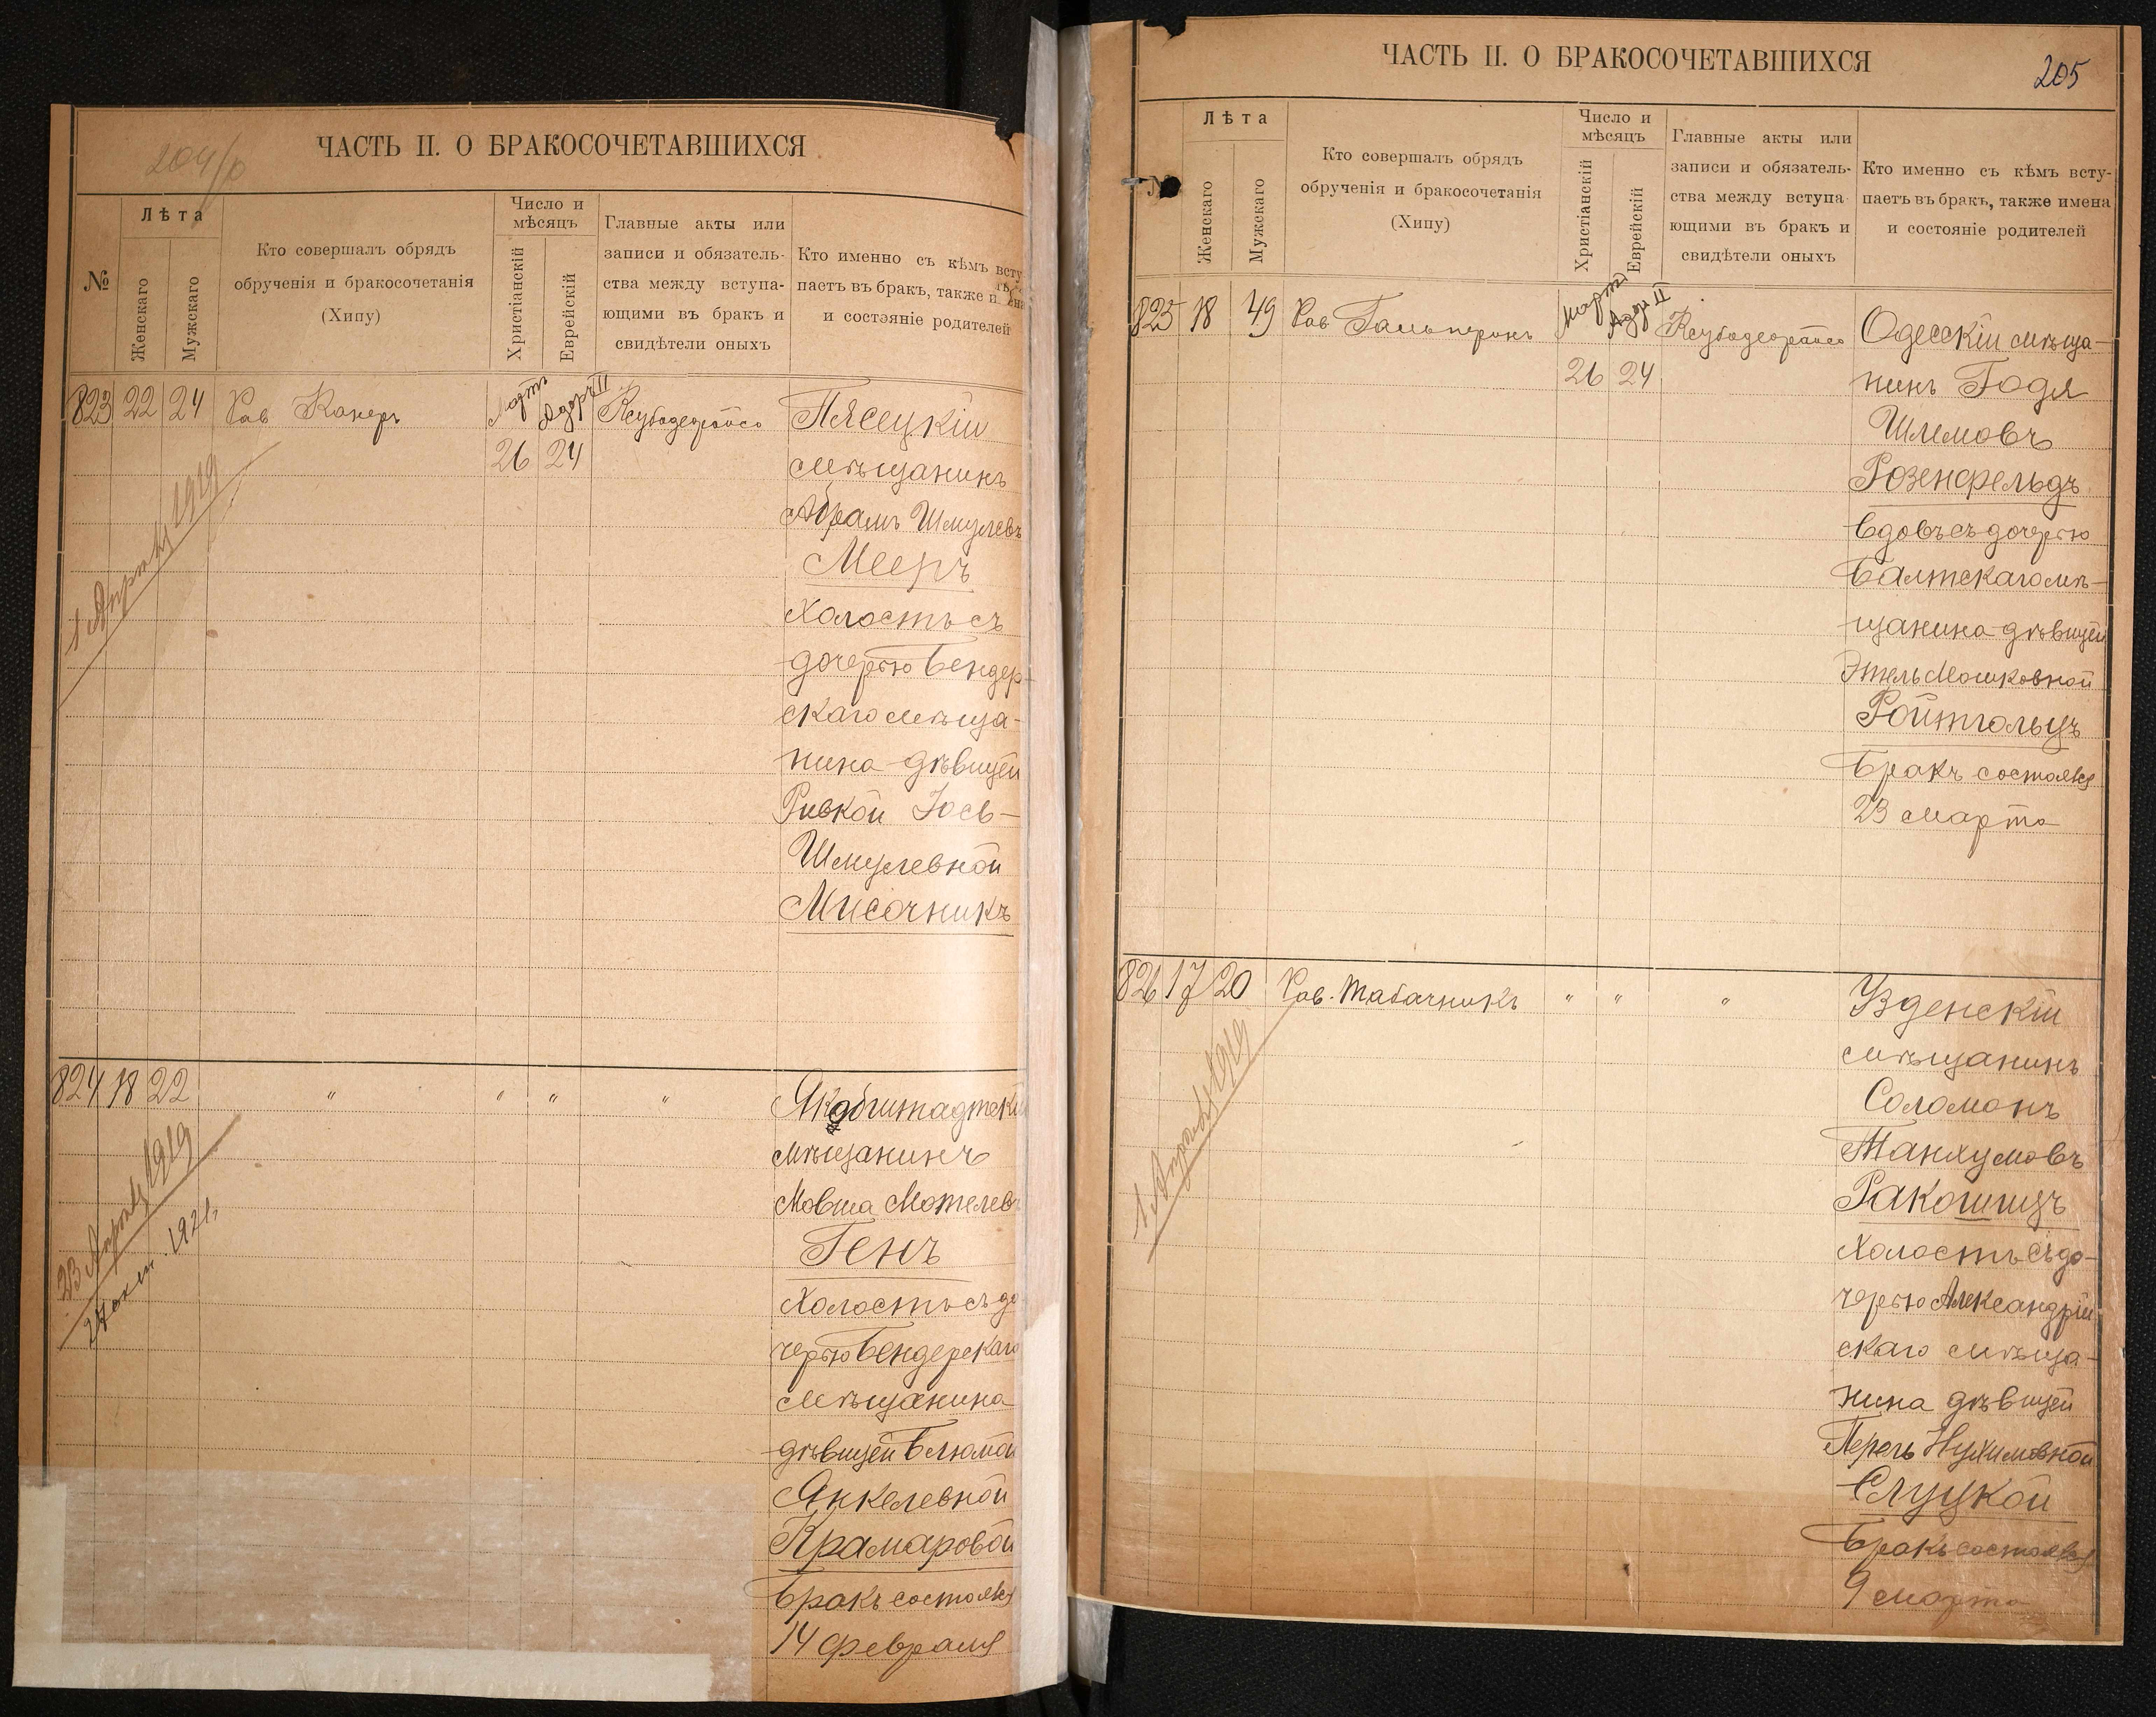 204/о
ЧАСТЬ II. О БРАКОСОЧЕТАВШИХСЯ
№
Лѣта
Женскаго
Мужскаго
Кто совершалъ обрядъ
обрученія и бракосочетанія
(Хипу)
Число и
мѣсяцъ
Христіанскій
Еврейскій
Главные акты или
записи и обязатель-
ства между вступа-
ющими въ бракъ и
свидѣтели оныхъ
Кто именно съ кѣмъ всту
паетъ въ бракъ, также и
и состояніе родителей
823 22 24 Рав Канеръ Мартъ Адаръ II
26 24
Пясецкій
мѣщанинъ
Абрамъ Шмулевъ
Мееръ
Холостъ съ
дочерью Бендер-
скаго мѣща-
нина дѣвицей
Ривкой Іось-
Шмулевной
Мисочникъ
1 Апрѣля 1919
824 18 22 " " " "
Якобштадтскій
мѣщанинъ
Мовша Мотелев
Генъ
Холостъ съ до
черью Бендерскаго
мѣщанина
дѣвицей Блюмой
Янкелевной
Крамаровой
Бракъ состоялся
14 февраля
23 Апрѣля 1919
1921
ЧАСТЬ II. О БРАКОСОЧЕТАВШИХСЯ
205
№
Лѣта
Женскаго
Мужскаго
Кто совершалъ обрядъ
обрученія и бракосочетанія
(Хипу)
Число и
мѣсяцъ
Христіанскій
Еврейскій
Главные акты или
записи и обязатель-
ства между вступа
ющими въ бракъ и
свидѣтели оныхъ
Кто именно съ кѣмъ всту-
паетъ въ бракъ, также имена
и состояніе родителей
825 18 49 Рав Гальперинъ Мартъ Адаръ II
26 24
Одесскій мѣща-
нинъ Годя
Шлемовъ
Розенфельдъ
вдовъ съ дочерью
Балтскаго мѣ-
щанина дѣвицей
Этель Мошковной
Ройтгольцъ
Бракъ состоялся
23 марта
826 17 20 Рав. Табачникъ " " "
Узденскій
мѣщанинъ
Соломонъ
Танхумовъ
Ракошицъ
Холостъ съ до-
черью Александрій
скаго мѣща-
нина дѣвицей
Перель Нухимовной
Слуцкой
Бракъ состоялся
9 марта
1 Апрѣля 1919